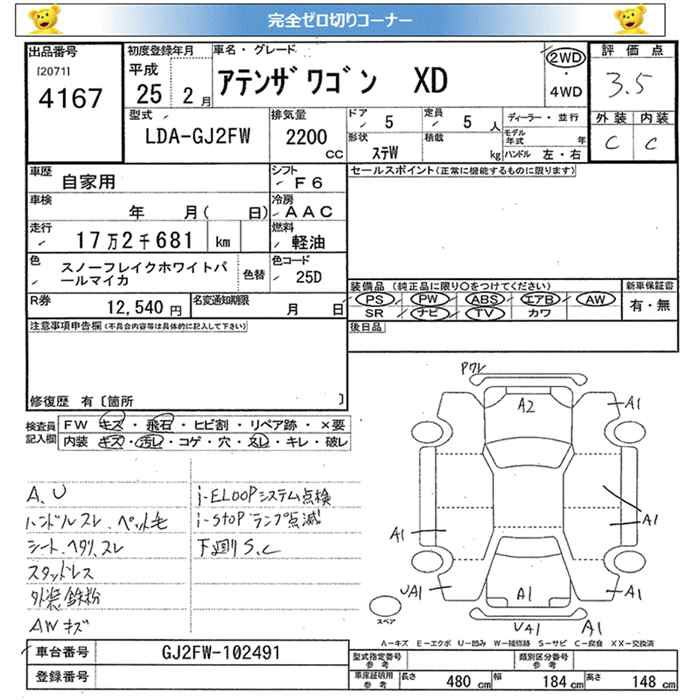 完全ゼロ切りコーナー
出品番号
[2071]
4167
初度登録年月
平成
25 2月
車名・グレード
アテンザワゴン XD
2WD
・
4WD
評価点
3.5
外装 内装
C C
型式
LDA-GJ2FW
排気量
2200
CC
ドア
5
定員
5 人
形状
ステW
積載
kg
ディーラー・並行
モデル年式 年
ハンドル 左・右
車歴
自家用
シフト
F6
車検
年 月( 日)
冷房
AAC
走行
17万2千681 km
燃料
軽油
色
スノーフレイクホワイトパ
ールマイカ
色替
色コード
25D
R券
12,540 円
名変通知期限
月 日
セールスポイント(正常に機能するものに限ります)
装備品 (純正品に限り○をつけてください)
PS PW ABS エアB AW
SR ナビ TV カワ
新車保証書
有・無
後日品
注意事項申告欄(不具合内容等は具体的に記入して下さい)
修復歴 有〔箇所 〕
検査員
記入欄
FW キズ・飛石・ヒビ割・リペア跡・×要
内装 キズ・汚レ・コゲ・穴・スレ・キレ・破レ
A.U
ハンドルスレ、ペット毛
シート、ヘタリ、スレ
スタッドレス
外装鉄粉
AWキズ
i-ELOOPシステム点検
i-STOPランプ点滅
下廻りS.C
Pワレ
A2
A1
A1
A1
A1
UA1
A1
UA1
スペア
A-キズ E-エクボ U-凹み W-補修跡 S-サビ C-腐食 XX-交換済
車台番号
GJ2FW-102491
登録番号
型式指定番号
参考
類別区分番号
参考
車庫証明用
参考
長さ 480 cm
幅 184 cm
高さ 148 cm